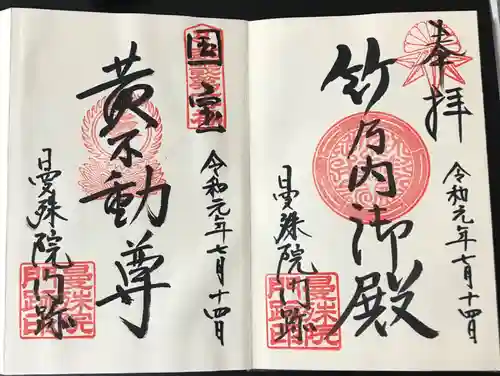 奉拝
令和元年七月十四日
竹之内御殿
曼殊院門跡
曼殊院門跡印
国宝
令和元年七月十四日
黄不動尊
曼殊院門跡
曼殊院門跡印